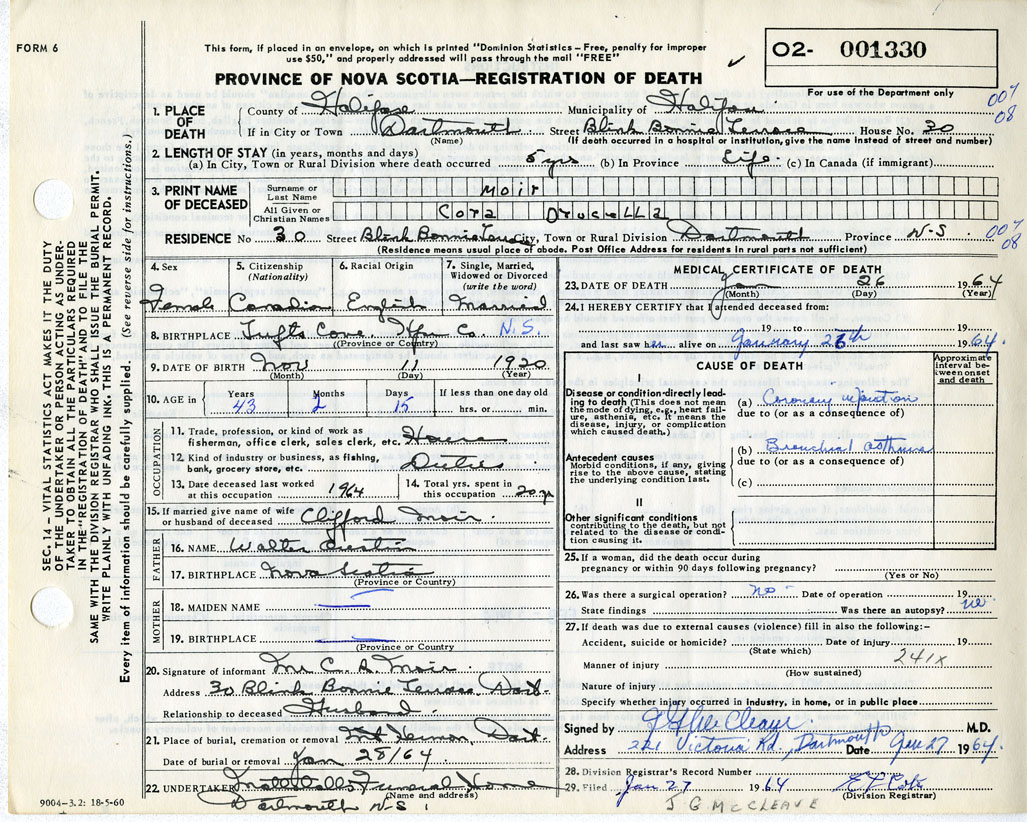 FORM 6
This form, if placed in an envelope, on which is printed "Dominion Statistics – Free, penalty for improper
use $50," and properly addressed will pass through the mail "FREE"
PROVINCE OF NOVA SCOTIA—REGISTRATION OF DEATH
O2- 001330
For use of the Department only
007
08
1. PLACE OF DEATH
County of Halifax Municipality of Halifax
If in City or Town Dartmouth Street Blink Bonnie Terrace House No. 30
(Name) (If death occurred in a hospital or institution, give name instead of street and number)
2. LENGTH OF STAY (in years, months and days)
(a) In City, Town or Rural Division where death occurred 5 yrs (b) In Province Life (c) In Canada (if immigrant)
3. PRINT NAME OF DECEASED
Surname or Last Name Moir
All Given or Christian Names Cora Drucella
RESIDENCE No 30 Street Blink Bonnie Terrace City, Town or Rural Division Dartmouth Province N-S
007
08
(Residence means usual place of abode. Post Office Address for residents in rural parts not sufficient)
4. Sex Female
5. Citizenship (Nationality) Canadian
6. Racial Origin English
7. Single, Married, Widowed or Divorced (write the word) Married
8. BIRTHPLACE Tufts Cove Hfx Co. N.S.
(Province or Country)
9. DATE OF BIRTH Nov 11 1920
(Month) (Day) (Year)
10. AGE in Years 43 Months 2 Days 15 If less than one day old hrs. or min.
OCCUPATION
11. Trade, profession, or kind of work as
fisherman, office clerk, sales clerk, etc. House
12. Kind of industry or business, as fishing,
bank, grocery store, etc. Duties
13. Date deceased last worked
at this occupation 1964
14. Total yrs. spent in
this occupation 20 yr
15. If married give name of wife
or husband of deceased Clifford Moir
FATHER
16. NAME Walter
17. BIRTHPLACE Nova Scotia
(Province or Country)
MOTHER
18. MAIDEN NAME —
19. BIRTHPLACE —
(Province or Country)
20. Signature of informant Mr C. A. Moir
Address 30 Blink Bonnie Terrace, Dart.
Relationship to deceased Husband
21. Place of burial, cremation or removal Mt Hermon, Dart.
Date of burial or removal Jan 28/64
22. UNDERTAKER Funeral Home
(Name and address)
Dartmouth N-S
9004–3.2: 18-5-60
MEDICAL CERTIFICATE OF DEATH
23. DATE OF DEATH Jan 26 1964
(Month) (Day) (Year)
24. I HEREBY CERTIFY that I attended deceased from:
19 to 19
and last saw her alive on January 26th 1964.
CAUSE OF DEATH
Approximate interval between onset and death
I
Disease or condition directly lead-
ing to death (This does not mean
the mode of dying, e.g., heart fail-
ure, asthenia, etc. It means the
disease, injury, or complication
which caused death.)
(a) Coronary
due to (or as a consequence of)
Antecedent causes
Morbid conditions, if any, giving
rise to the above cause, stating
the underlying condition last.
(b) Bronchial asthma
due to (or as a consequence of)
(c)
II
Other significant conditions
contributing to the death, but not
related to the disease or condi-
tion causing it.
25. If a woman, did the death occur during
pregnancy or within 90 days following pregnancy?
(Yes or No)
26. Was there a surgical operation? no Date of operation 19
State findings Was there an autopsy? no
27. If death was due to external causes (violence) fill in also the following:–
Accident, suicide or homicide? Date of injury 19
(State which)
Manner of injury 241X
(How sustained)
Nature of injury
Specify whether injury occurred in industry, in home, or in public place
Signed by J G McCleave M.D.
Address 221 Victoria Rd., Dartmouth Date Jan 27 1964
28. Division Registrar's Record Number
29. Filed Jan 27 1964
(Division Registrar)
J G McCLEAVE
SEC. 14 – VITAL STATISTICS ACT MAKES IT THE DUTY
OF THE UNDERTAKER OR PERSON ACTING AS UNDER-
TAKER TO OBTAIN ALL THE PARTICULARS REQUIRED
IN THE "REGISTRATION OF DEATH" AND TO FILE THE
SAME WITH THE DIVISION REGISTRAR WHO SHALL ISSUE THE BURIAL PERMIT.
WRITE PLAINLY WITH UNFADING INK. THIS IS A PERMANENT RECORD.
Every item of information should be carefully supplied. (See reverse side for instructions.)